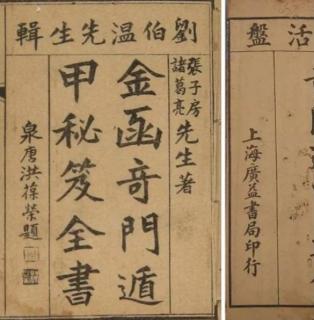 劉伯温先生輯
張子房
諸葛亮
先生著
金函奇門遁
甲秘笈全書
泉唐洪葆榮題
活盤
上海廣益書局印行